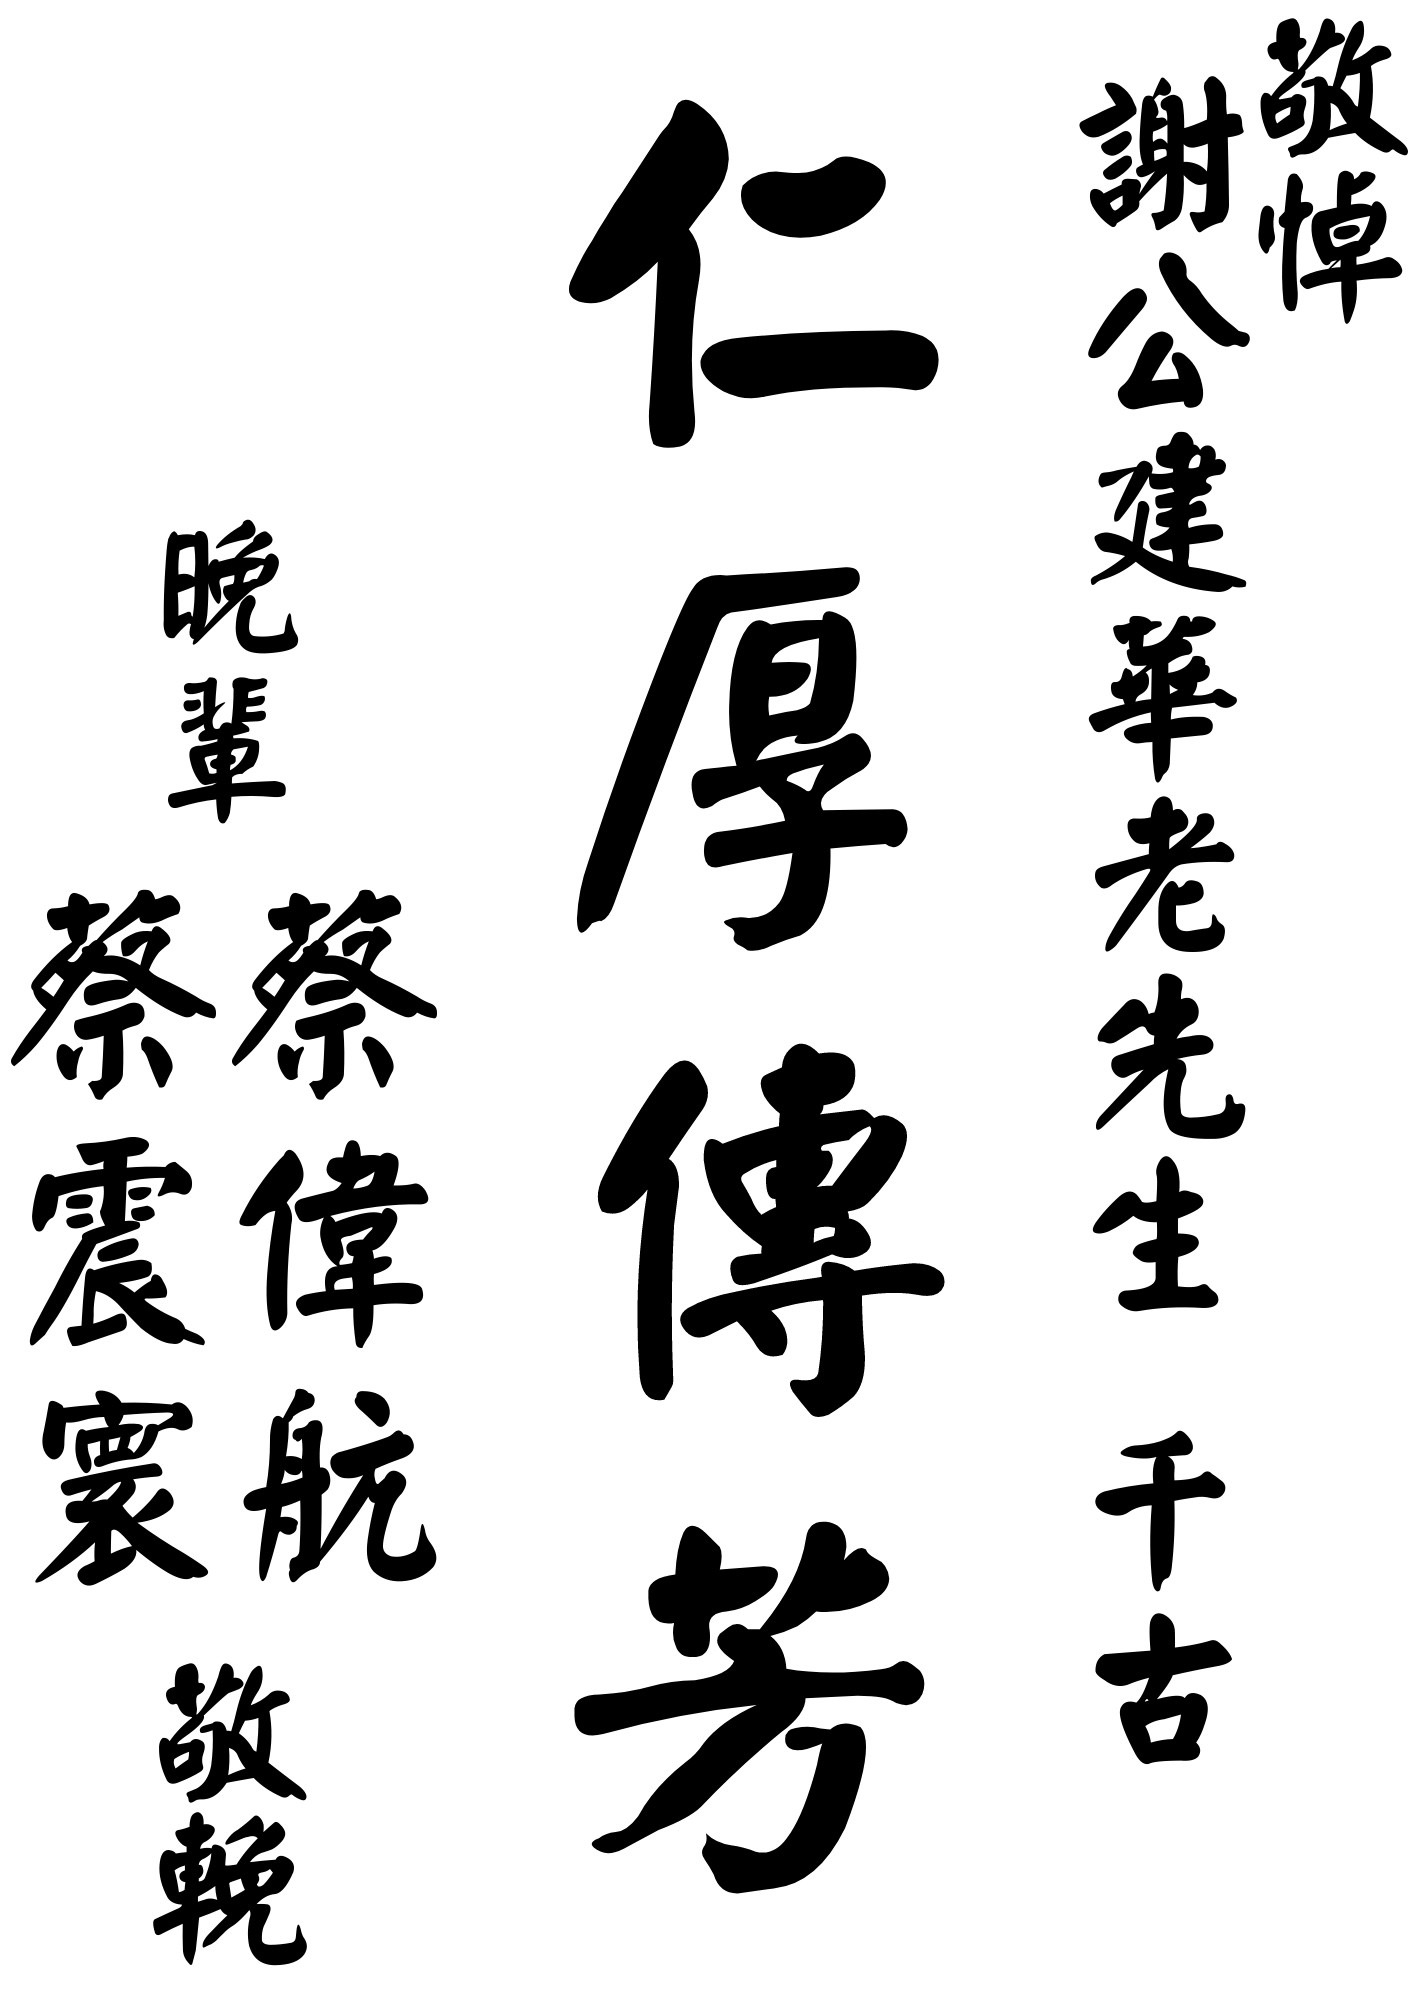 敬悼
謝公建華老先生 千古
仁厚傳芳
晚輩
蔡偉航
蔡震寰
敬輓